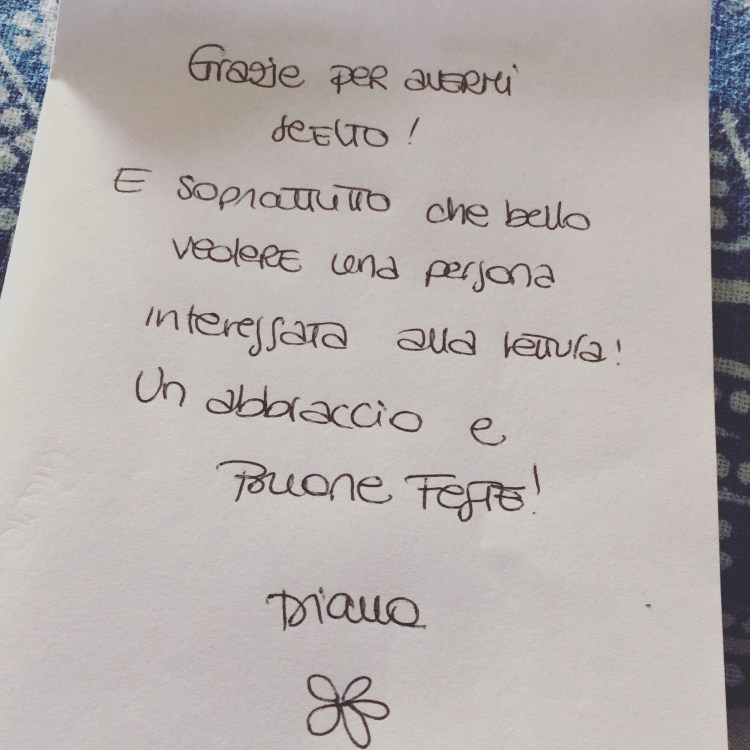 Grazie per avermi
scelto!
E soprattutto che bello
vedere una persona
interessata alla lettura!
Un abbraccio e
Buone Feste!